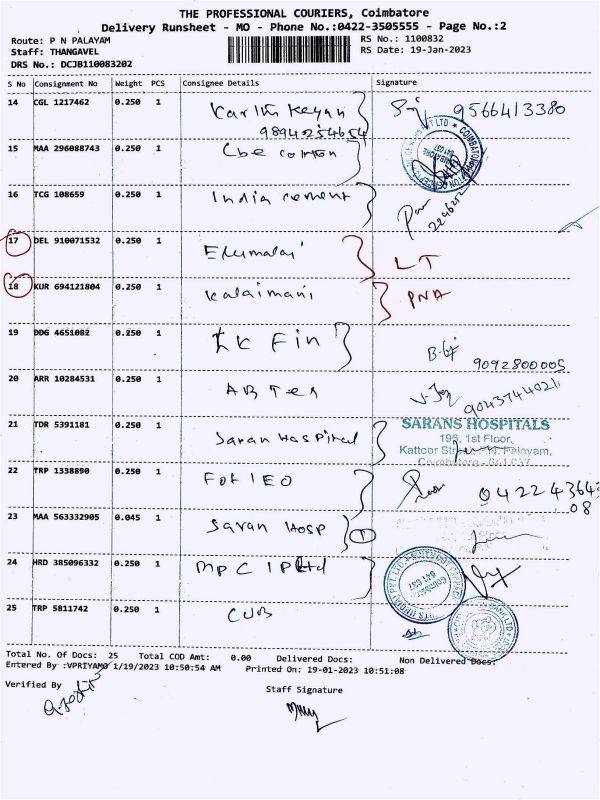 THE PROFESSIONAL COURIERS, Coimbatore
Delivery Runsheet - MO - Phone No.:0422-3505555 - Page No.:2
Route: P N PALAYAM RS No.: 1100832
Staff: THANGAVEL RS Date: 19-Jan-2023
DRS No.: DCJB110083202
S No Consignment No Weight PCS Consignee Details Signature
14 CGL 1217462 0.250 1 Karthikeyan 9566413380
9894254654
15 MAA 296088743 0.250 1 Cbe cotton
16 TCG 108659 0.250 1 India cement
17 DEL 910071532 0.250 1 Elumalai LT
18 KUR 694121804 0.250 1 Kalaimani PNA
19 DDG 4651082 0.250 1 Fin
9092800005
20 ARR 10284531 0.250 1 AB Tex
21 TDR 5391181 0.250 1 Saran Hospital SARANS HOSPITALS
196, 1st Floor,
Kattoor Street, P.N. Palayam,
Coimbatore - 641 037
22 TRP 1338890 0.250 1
23 MAA 563332905 0.045 1 Saran Hosp 1
24 HRD 385096332 0.250 1 MPC I P Ltd
25 TRP 5811742 0.250 1 CUB
Total No. Of Docs: 25 Total COD Amt: 0.00 Delivered Docs: Non Delivered Docs:
Entered By :VPRIYAMO 1/19/2023 10:50:54 AM Printed On: 19-01-2023 10:51:08
Verified By Staff Signature